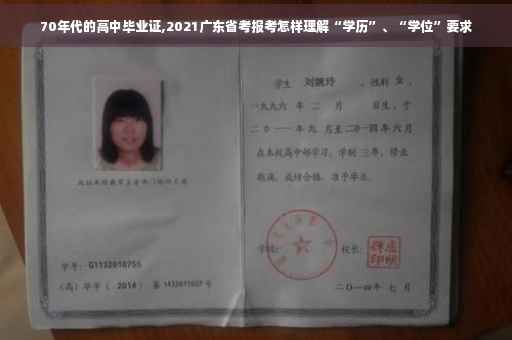 70年代的高中毕业证,2021广东省考报考怎样理解“学历”、“学位”要求
学生 刘婉玲 ,性别 女 ,
一九九六 年 二 月 日生,于
二〇一一年九 月至二〇一四年 六 月
在本校高中部学习, 学制 三年, 修业
期满, 成绩合格, 准予毕业。
学校:
校长:
学号: G1132010755
(高) 毕字 ( 2014 ) 第 1432011037 号
二〇一四年 七 月